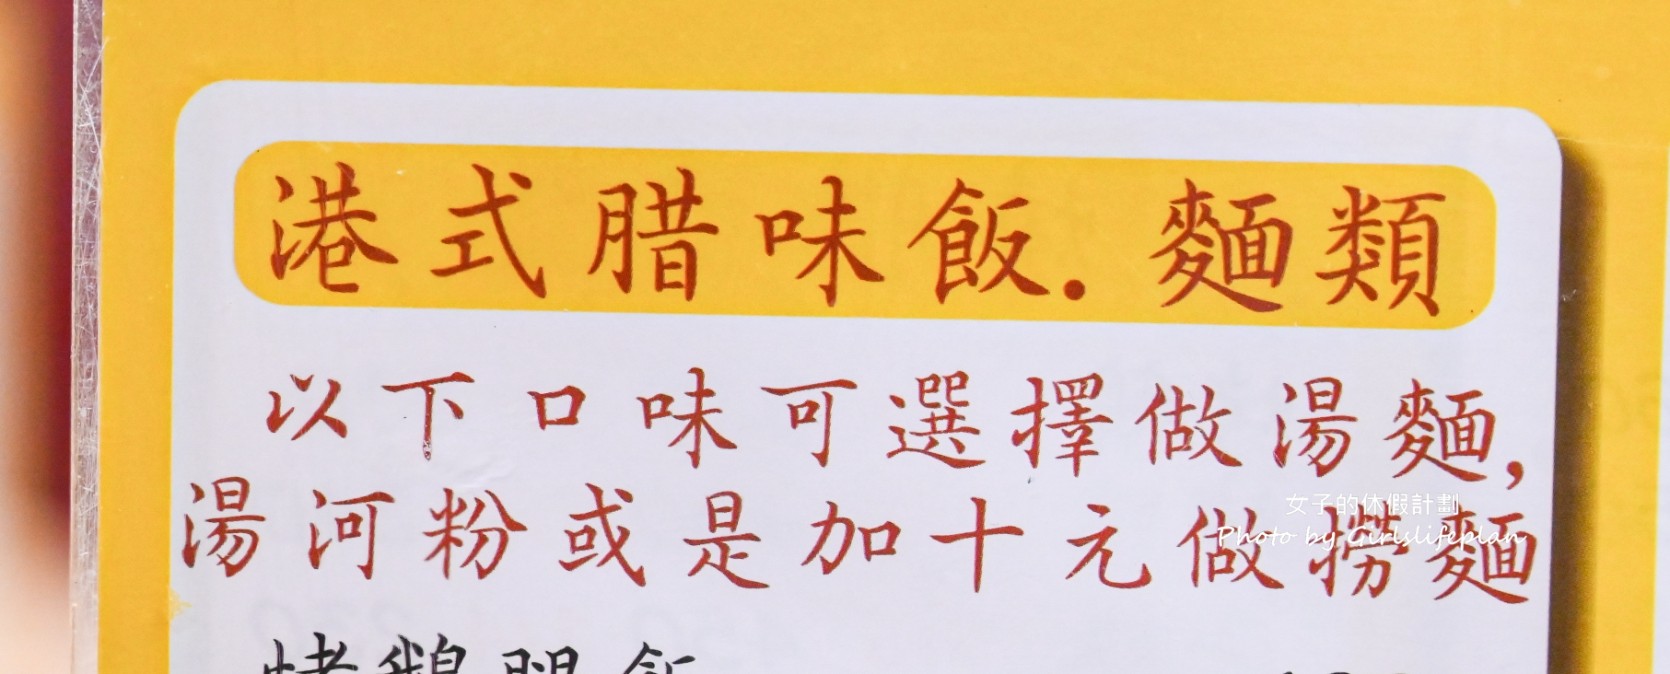 港式腊味飯．麵類
以下口味可選擇做湯麵，
湯河粉或是加十元做撈麵
女子的休假計劃
Photo by Girlslifeplan
烤鵝腿飯